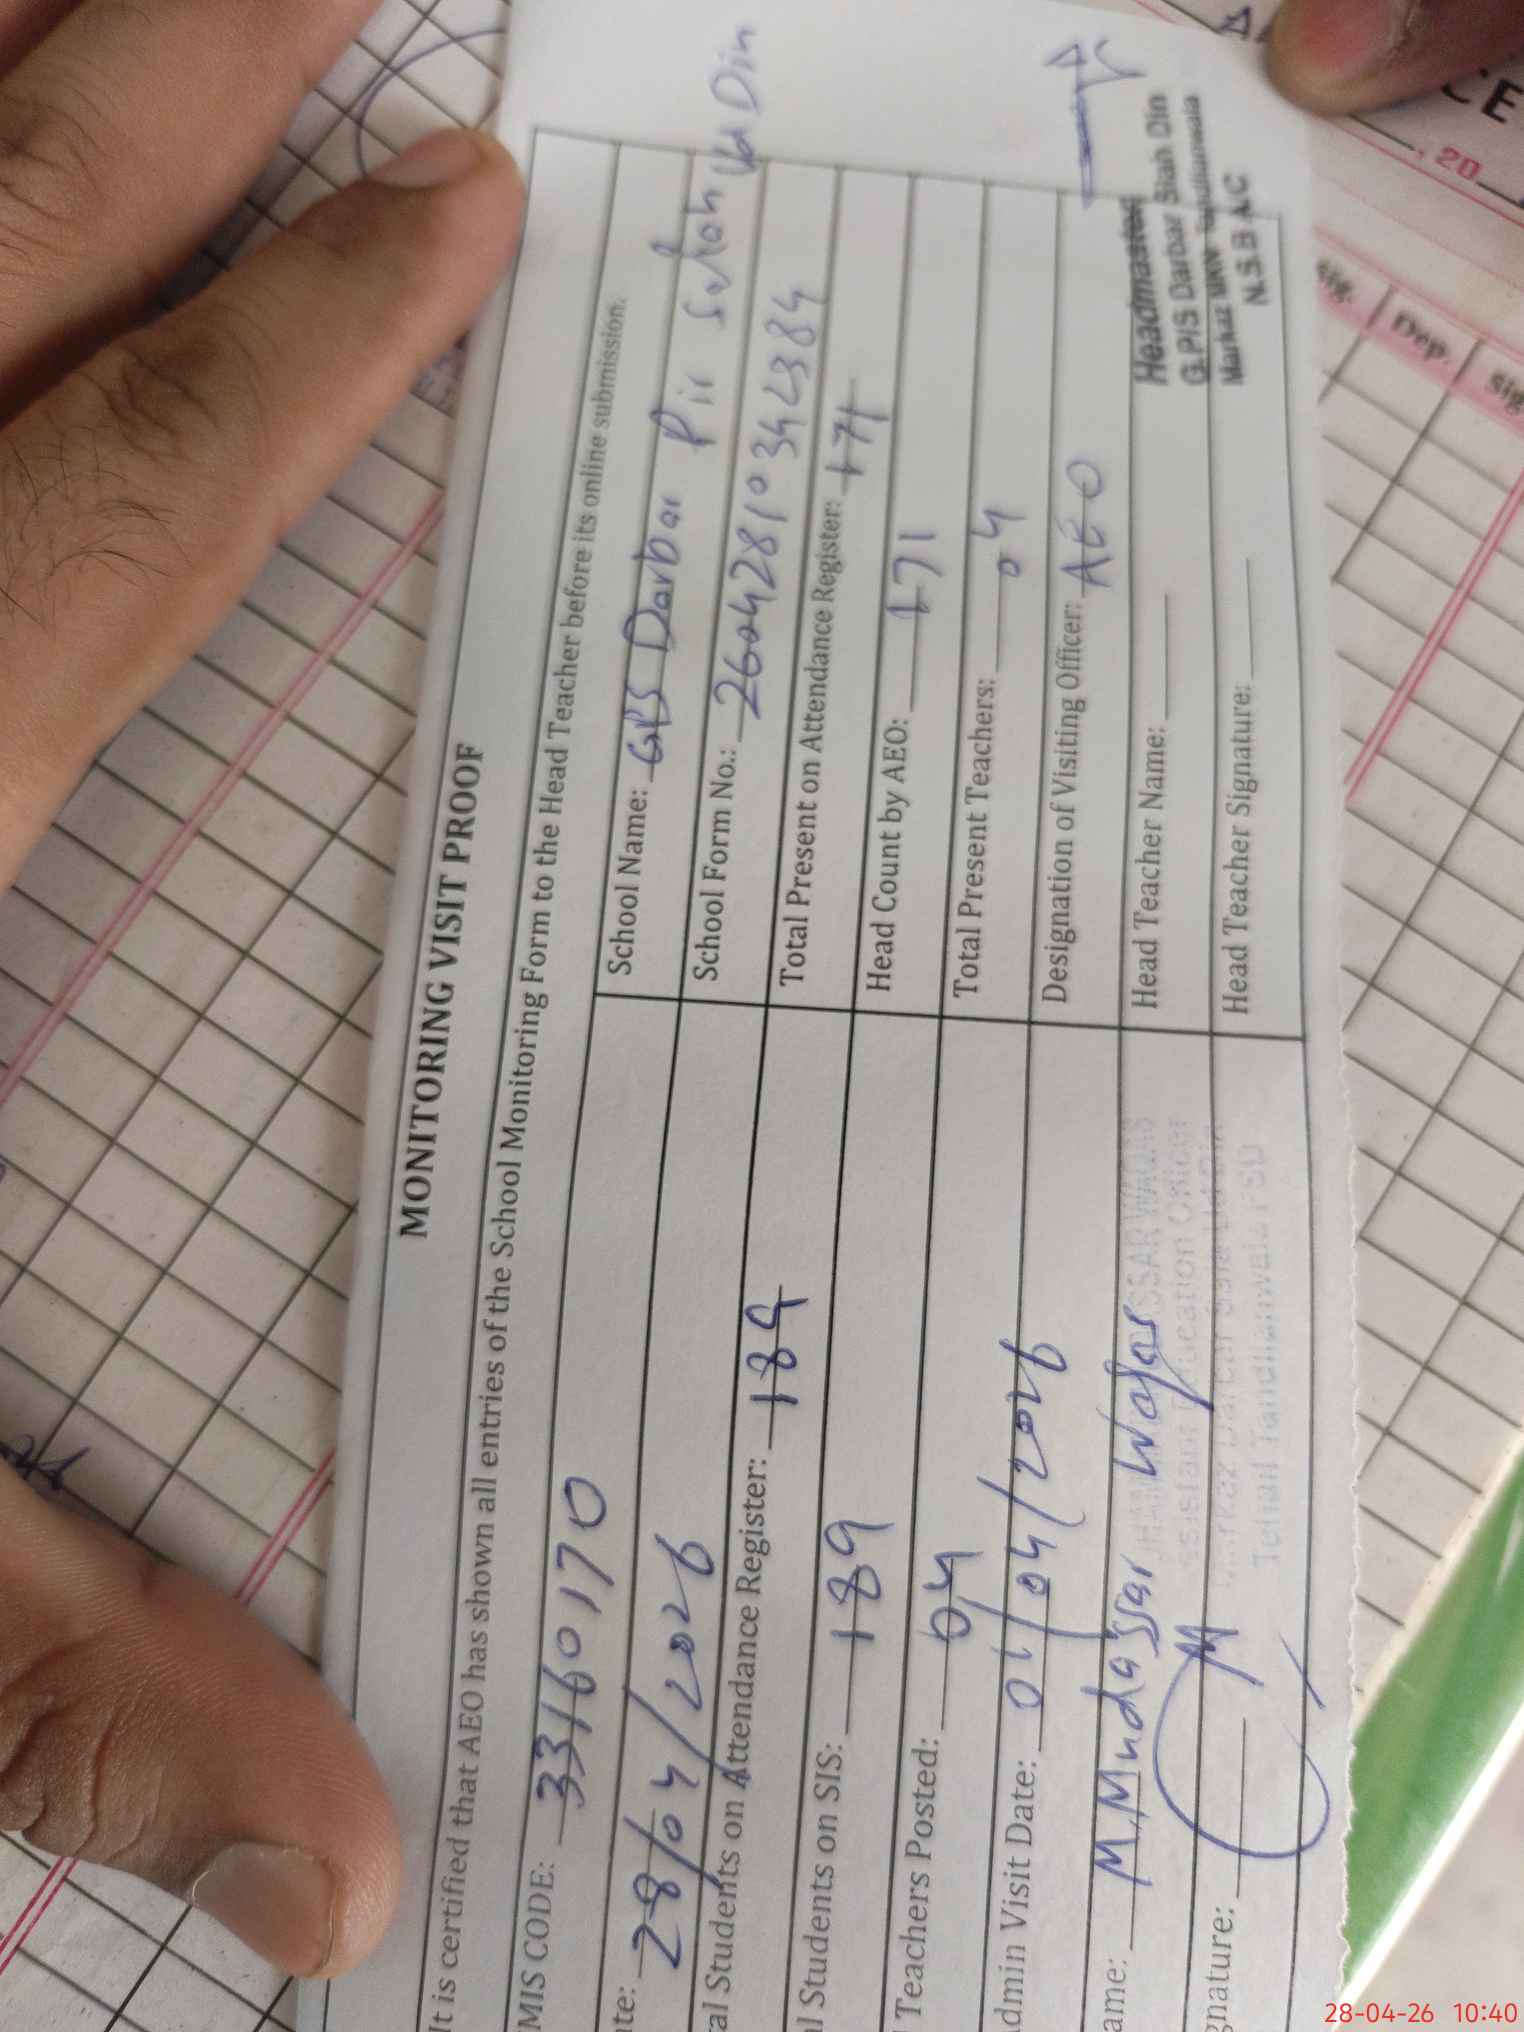 MONITORING VISIT PROOF
It is certified that AEO has shown all entries of the School Monitoring Form to the Head Teacher before its online submission.
MIS CODE: 33160170
School Name: GPS Darbar Pir Salah Ud Din
te: 28/04/2026
School Form No.: 26042810342384
al Students on Attendance Register: 189
Total Present on Attendance Register: 171
l Students on SIS: 189
Head Count by AEO: 171
Teachers Posted: 04
Total Present Teachers: 04
dmin Visit Date: 01/04/2026
Designation of Visiting Officer: AEO
ame: M. Mudassar Waqas
Head Teacher Name:
gnature: M
Head Teacher Signature:
Assistant Education Officer
Headmaster
G.P/S Darbar Slah Din
Markaz MKW Tandlianwala
CE
, 20
sig.
Dep.
sig
28-04-26 10:40